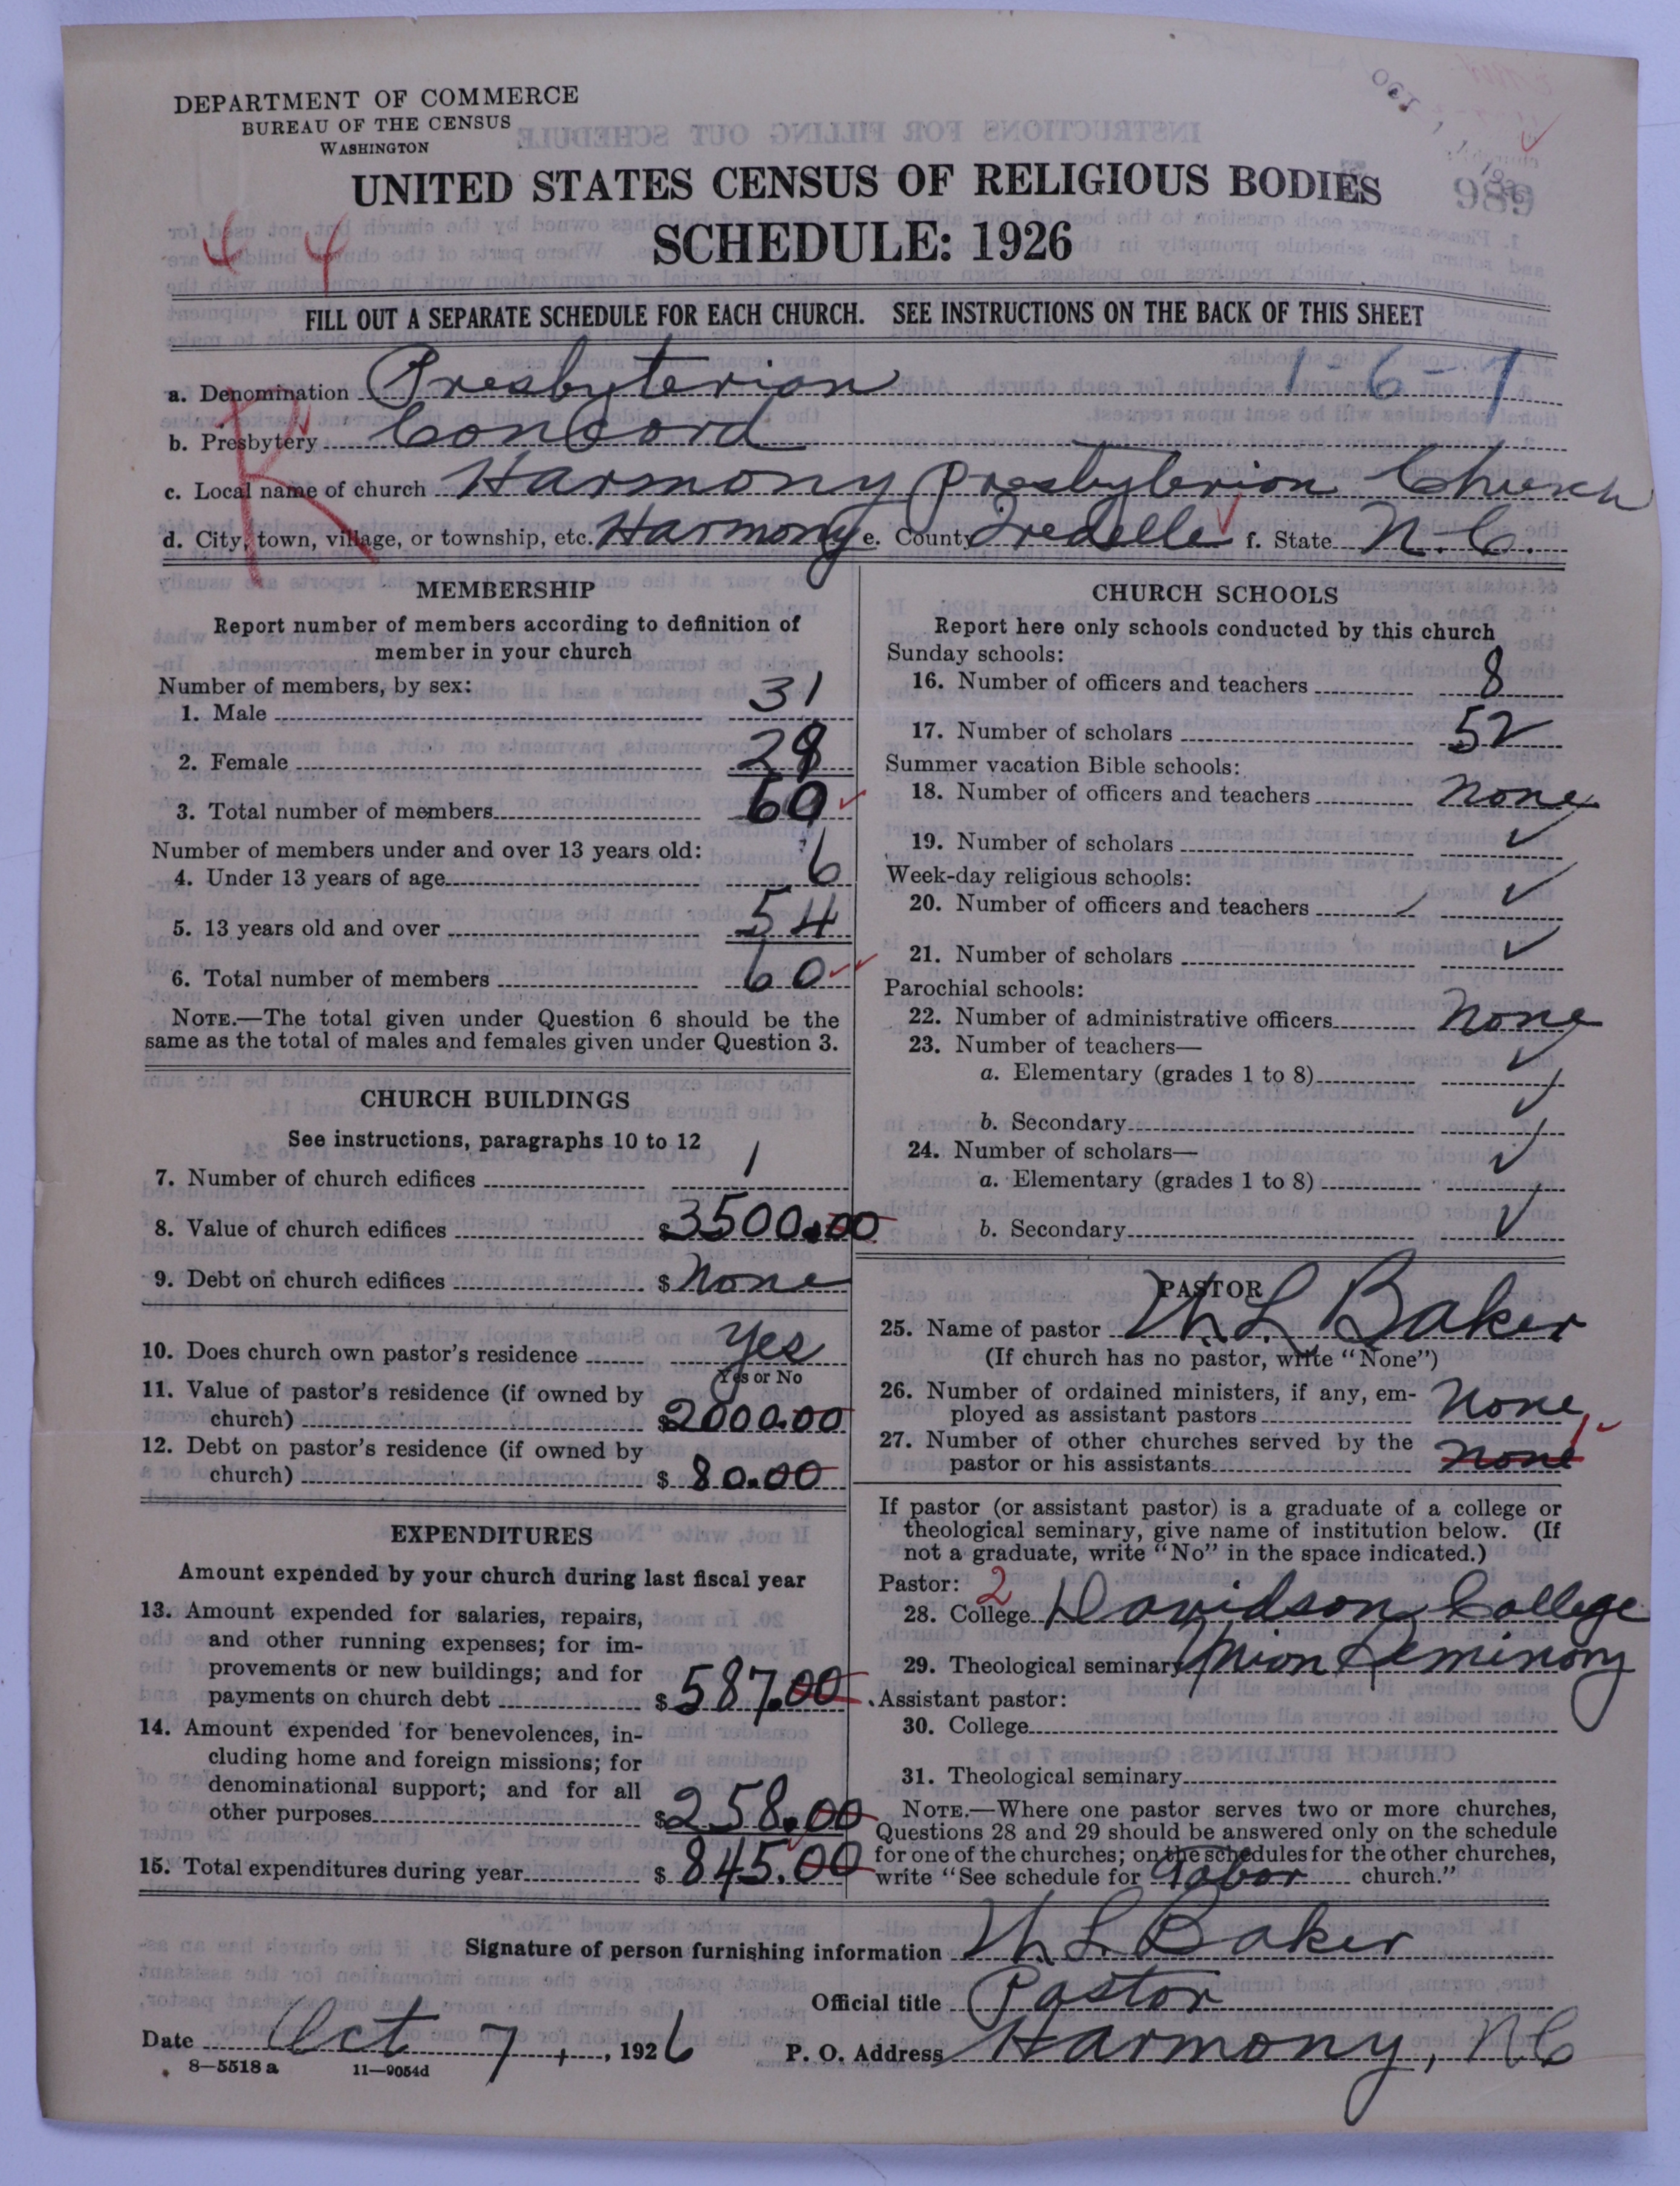 DEPARTMENT OF COMMERCE
BUREAU OF THE CENSUS
WASHINGTON
UNITED STATES CENSUS OF RELIGIOUS BODIES
SCHEDULE: 1926
989
4 4
FILL OUT A SEPARATE SCHEDULE FOR EACH CHURCH. SEE INSTRUCTIONS ON THE BACK OF THIS SHEET
a. Denomination Presbyterian 1-6-7
b. Presbytery Concord
c. Local name of church Harmony Presbyterian Church
d. City, town, village, or township, etc. Harmony e. County Iredelle f. State N.C.
R
MEMBERSHIP
Report number of members according to definition of
member in your church
Number of members, by sex:
1. Male 31
2. Female 29
3. Total number of members 60
Number of members under and over 13 years old:
4. Under 13 years of age 6
5. 13 years old and over 54
6. Total number of members 60
NOTE.—The total given under Question 6 should be the
same as the total of males and females given under Question 3.
CHURCH BUILDINGS
See instructions, paragraphs 10 to 12
7. Number of church edifices 1
8. Value of church edifices $3500.00
9. Debt on church edifices $ None
10. Does church own pastor's residence Yes
Yes or No
11. Value of pastor's residence (if owned by
church) $2000.00
12. Debt on pastor's residence (if owned by
church) $ 80.00
EXPENDITURES
Amount expended by your church during last fiscal year
13. Amount expended for salaries, repairs,
and other running expenses; for im-
provements or new buildings; and for
payments on church debt $ 587.00
14. Amount expended for benevolences, in-
cluding home and foreign missions; for
denominational support; and for all
other purposes $258.00
15. Total expenditures during year $ 845.00
CHURCH SCHOOLS
Report here only schools conducted by this church
Sunday schools:
16. Number of officers and teachers 8
17. Number of scholars 52
Summer vacation Bible schools:
18. Number of officers and teachers None
19. Number of scholars ✓
Week-day religious schools:
20. Number of officers and teachers ✓
21. Number of scholars ✓
Parochial schools:
22. Number of administrative officers None
23. Number of teachers—
a. Elementary (grades 1 to 8) ✓
b. Secondary ✓
24. Number of scholars—
a. Elementary (grades 1 to 8) ✓
b. Secondary ✓
PASTOR
25. Name of pastor L Baker
(If church has no pastor, write "None")
26. Number of ordained ministers, if any, em-
ployed as assistant pastors None
27. Number of other churches served by the
pastor or his assistants None 1
If pastor (or assistant pastor) is a graduate of a college or
theological seminary, give name of institution below. (If
not a graduate, write "No" in the space indicated.)
Pastor: 2
28. College Davidson College
29. Theological seminary Union Seminary
Assistant pastor:
30. College
31. Theological seminary
NOTE.—Where one pastor serves two or more churches,
Questions 28 and 29 should be answered only on the schedule
for one of the churches; on the schedules for the other churches,
write "See schedule for Tabor church."
Signature of person furnishing information L Baker
Official title Pastor
Date Oct 7, 1926 P. O. Address Harmony, NC
8—5518 a 11—9054d